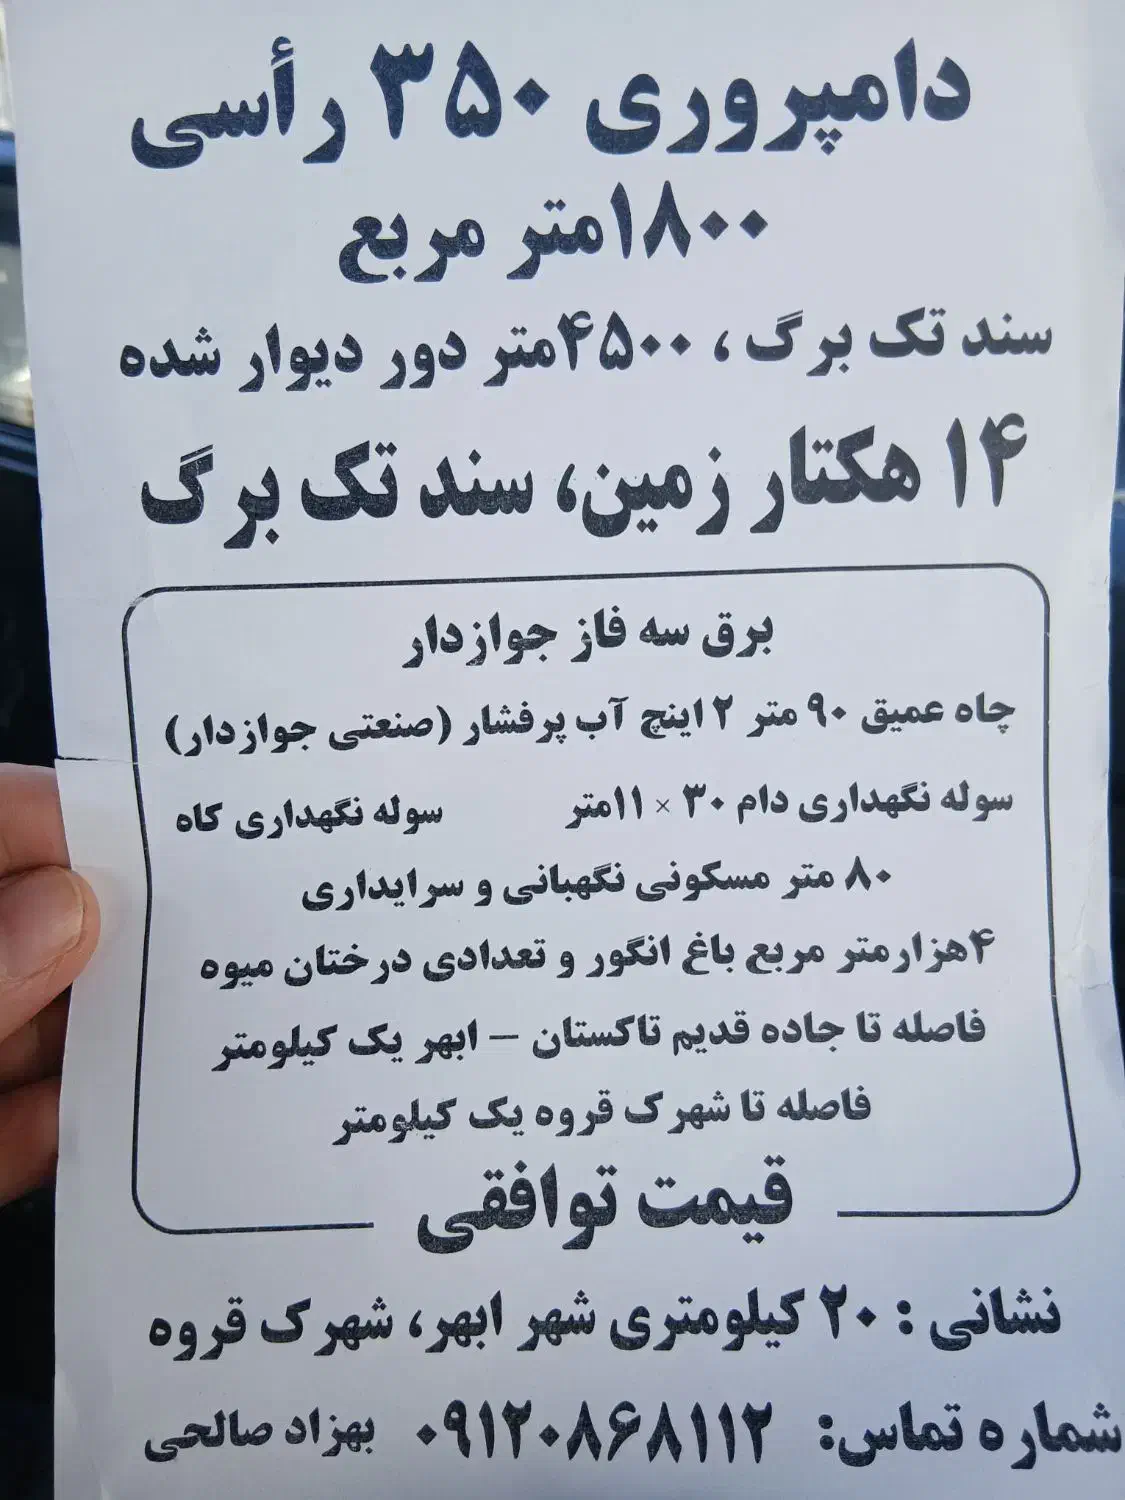 دامپروری ۳۵۰ رأسی
۱۸۰۰متر مربع
سند تک برگ، ۴۵۰۰متر دور دیوار شده
۱۴ هکتار زمین، سند تک برگ
برق سه فاز جوازدار
چاه عمیق ۹۰ متر ۲ اینچ آب پرفشار (صنعتی جوازدار)
سوله نگهداری دام ۳۰ × ۱۱متر سوله نگهداری کاه
۸۰ متر مسکونی نگهبانی و سرایداری
۴هزارمتر مربع باغ انگور و تعدادی درختان میوه
فاصله تا جاده قدیم تاکستان – ابهر یک کیلومتر
فاصله تا شهرک قروه یک کیلومتر
قیمت توافقی
نشانی : ۲۰ کیلومتری شهر ابهر، شهرک قروه
شماره تماس: ۰۹۱۲۰۸۶۸۱۱۲ بهزاد صالحی